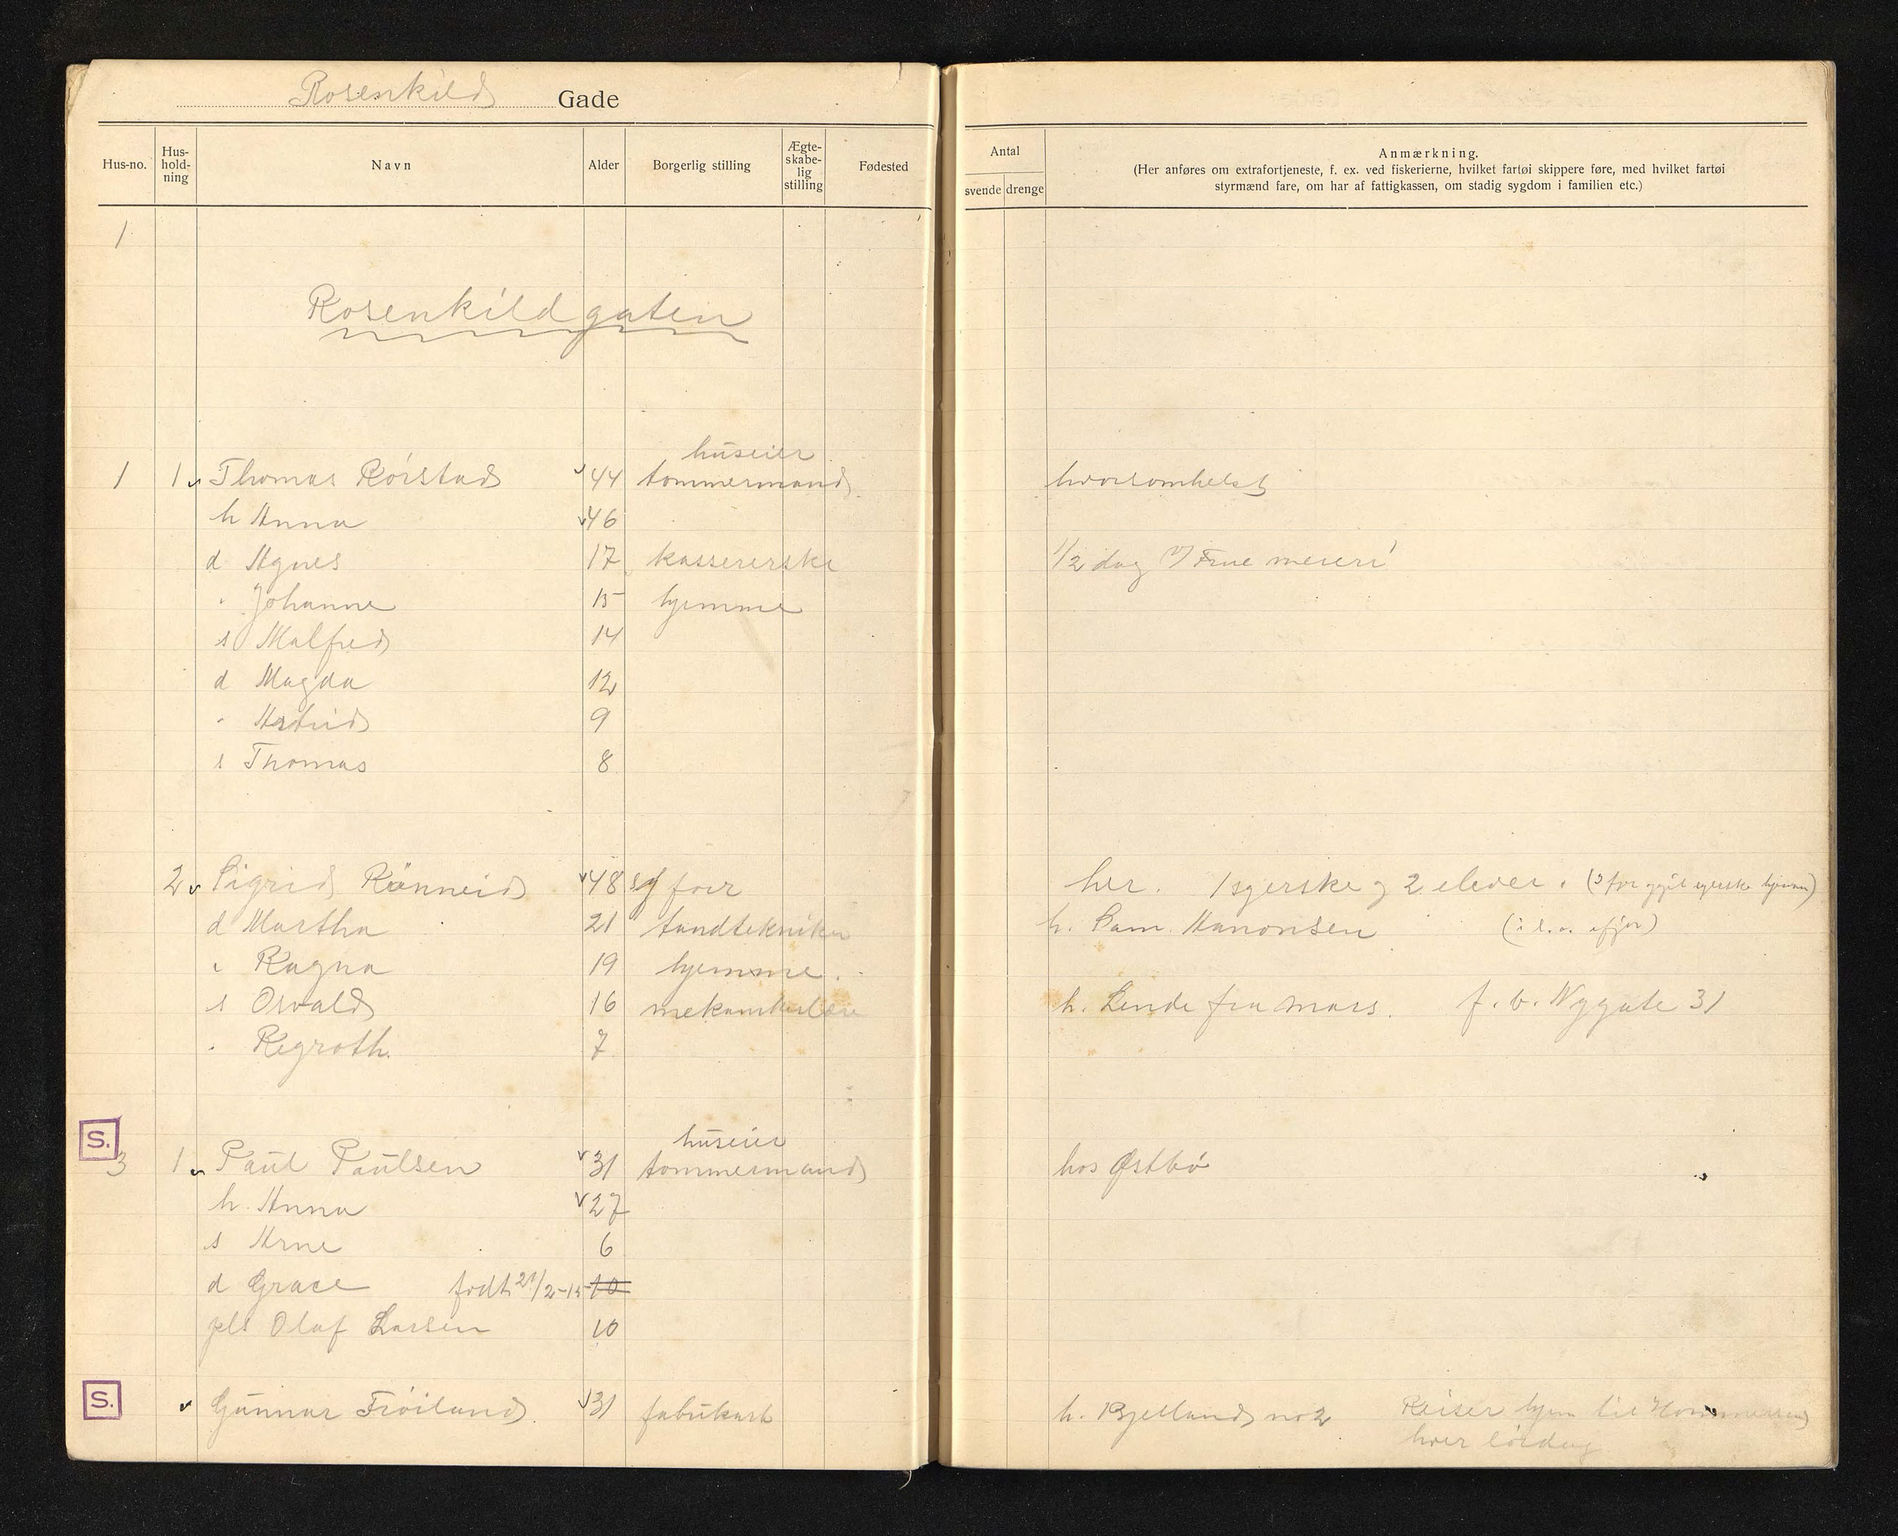 Rosenkild Gade
Hus-no. Hus-hold-ning Navn Alder Borgerlig stilling Ægte-skabe-lig stilling Fødested
Antal svende drenge
Anmærkning.
(Her anføres om extrafortjeneste, f. ex. ved fiskerierne, hvilket fartøi skippere føre, med hvilket fartøi
styrmænd fare, om har af fattigkassen, om stadig sygdom i familien etc.)
1
Rosenkildgaten
huseier
1 1 Thomas Rörstad 44 tømmermand hvorsomhelst
h Anna 46
d Agnes 17 kassererske 1/2 dag v/ Frue meieri
" Johanne 15 hjemme
s Malfred 14
d Magda 12
" Astrid 9
s Thomas 8
2 Sigrid Rönneid 48 her. 1 syerske og 2 elever.
d Martha 21 tandtekniker h. Sam. Aanonsen
" Ragna 19 hjemme
s Osvald 16 h. Lende fra mars. f. b. Nygate 31
" Regroth. 7
S.
huseier
3 1 Paul Paulsen 31 tømmermand hos Østbö
h. Anna 27
s Arne 6
d Grace født 21/2-15 10
pls Olaf Larsen 10
S.
Gunnar Fröiland 31 fabrikarb h. Bjelland no 2 Reiser hjem til
hver lördag